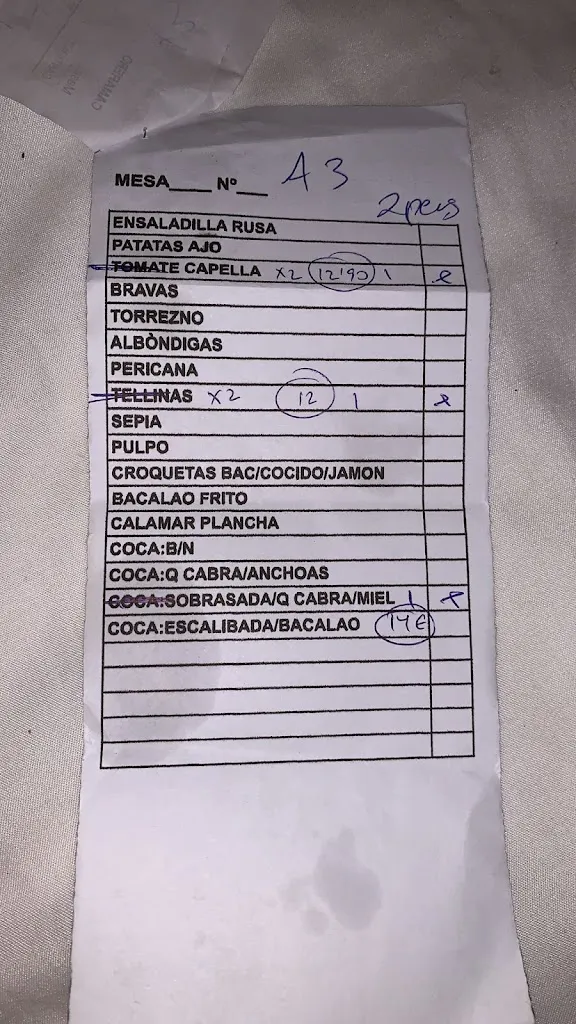 MESA____ Nº___ A3
2 pers
ENSALADILLA RUSA
PATATAS AJO
TOMATE CAPELLA x2 12'90 1
BRAVAS
TORREZNO
ALBÒNDIGAS
PERICANA
TELLINAS x2 12 1
SEPIA
PULPO
CROQUETAS BAC/COCIDO/JAMON
BACALAO FRITO
CALAMAR PLANCHA
COCA:B/N
COCA:Q CABRA/ANCHOAS
COCA:SOBRASADA/Q CABRA/MIEL 1
COCA:ESCALIBADA/BACALAO 14€